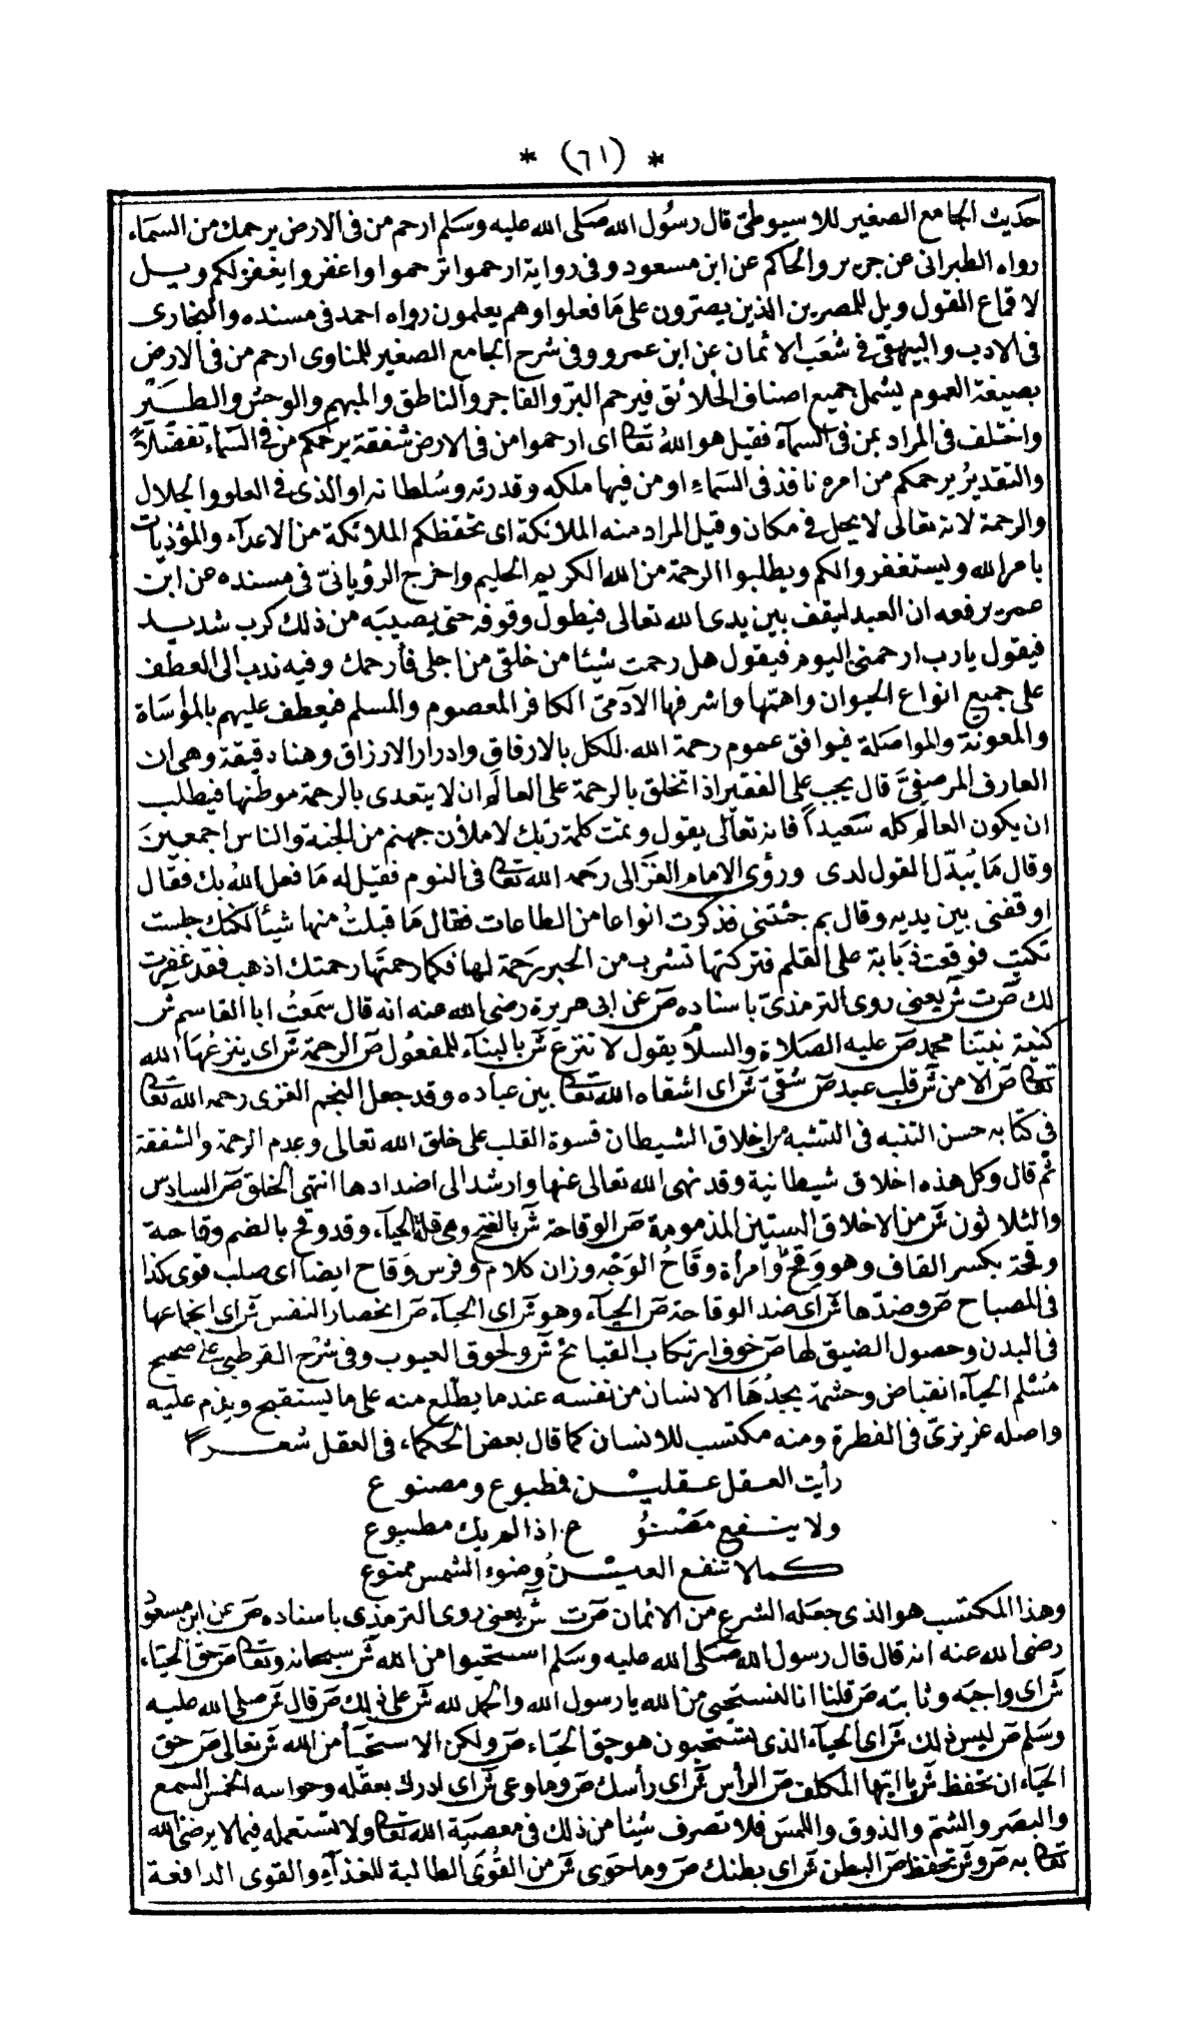 * (٦١) *
حديث الجامع الصغير للاسيوطي قال رسول الله صلى الله عليه وسلم ارحم من في الارض يرحمك من السماء
رواه الطبراني عن جرير والحاكم عن ابن مسعود وفي رواية ارحموا ترحموا واغفروا يغفر لكم ويل
لاقماع القول ويل للمصرين الذين يصرون على ما فعلوا وهم يعلمون رواه احمد في مسنده والبخاري
في الادب والبيهقي في شعب الايمان عن ابن عمرو وفي شرح الجامع الصغير للمناوي ارحم من في الارض
بصيغة العموم يشمل جميع اصناف الخلائق فيرحم البر والفاجر والناطق والمبهم والوحش والطير
واختلف في المراد بمن في السمآء فقيل هو الله تعا اى ارحموا من في الارض شفقة يرحمكم من في السماء تفضلاً
والتقدير يرحمكم من امره نافذ في السماء او من فيها ملكه وقدرته وسلطانه او الذي في العلو والجلال
والرحمة لانه تعالى لا يحل في مكان وقيل المراد منه الملائكة اى تحفظكم الملائكة من الاعدآء والمؤذيات
بامر الله ويستغفروا لكم ويطلبوا الرحمة من الله الكريم الحليم واخرج الروياني في مسنده عن ابن
عمر يرفعه ان العبد ليقف بين يدى الله تعالى فيطول وقوفه حتى يصيبه من ذلك كرب شديد
فيقول يارب ارحمني اليوم فيقول هل رحمت شيئا من خلقي من اجلى فأرحمك وفيه ندب الى العطف
على جميع انواع الحيوان واهمها واشرفها الآدمي الكافر المعصوم والمسلم فيعطف عليهم بالمؤساة
والمعونة والمواصلة فيوافق عموم رحمة الله للكل بالارفاق وادرار الارزاق وهنا دقيقة وهي ان
العارف المرصفي قال يجب على الفقير اذا تخلق بالرحمة على العالم ان لا يتعدى بالرحمة موطنها فيطلب
ان يكون العالم كله سعيداً فانه تعالى يقول وتمت كلمة ربك لاملأن جهنم من الجنة والناس اجمعين
وقال ما يبدل القول لدى ورؤى الامام الغزالى رحمه الله تعا في النوم فقيل له ما فعل الله بك فقال
اوقفني بين يديه وقال بم جئتنى فذكرت انواعا من الطاعات فقال ما قبلت منها شيئا لكنك جلست
تكتب فوقعت ذبابة على القلم فتركتها تشرب من الحبر رحمة لها فكما رحمتها رحمتك اذهب فقد غفرت
لك ص ت ش يعنى روى الترمذى باسناده ص عن ابى هريرة رضى الله عنه انه قال سمعت ابا القاسم ش
كنية نبينا محمد ص عليه الصلاة والسلا يقول لا تنزع ش بالبناء للمفعول ص الرحمة ش اى ينزعها الله
تعا ص الا من ش قلب عبد ص شقي ش اى اشقاه الله تعا بين عباده وقد جعل النجم الغزى رحمه الله تعا
في كتابه حسن التنبه في التشبه من اخلاق الشيطان قسوة القلب على خلق الله تعالى وعدم الرحمة والشفقة
ثم قال وكل هذه اخلاق شيطانية وقد نهى الله تعالى عنها وارشد الى اضدادها انتهى الخلق ص السادس
والثلاثون ش من الاخلاق الستين المذمومة ص الوقاحة ش بالفتح وهي قلة الحيآء وقد وقح بالضم وقاحة
وقحة بكسر القاف وهو وقح وامرأة وقاح الوجه وزان كلام وفرس وقاح ايضا اى صلب قوى كذا
في المصباح ص وضدها ش اى ضد الوقاحة ص الحيآء وهو ش اى الحيآء ص انحصار النفس ش اى انجماعها
في البدن وحصول الضيق لها ص خوف ارتكاب القبائح ش ولحوق العيوب وفي شرح القرطبي على صحيح
مسلم الحيآء انقباض وحشمة يجدها الانسان من نفسه عندما يطلع منه على ما يستقبح ويذم عليه
واصله غريزي في الفطرة ومنه مكتسب للانسان كما قال بعض الحكماء في العقل شعراً
رأيت العقل عقلين فمطبوع ومصنوع
ولا ينفع مصنو ع اذا لم يك مطبوع
كما لا تنفع العين وضوء الشمس ممنوع
وهذا المكتسب هو الذى جعله الشرع من الايمان ص ت ش يعنى روى الترمذى باسناده ص عن ابن مسعود
رضى الله عنه انه قال قال رسول الله صلى الله عليه وسلم استحيوا من الله ش سبحانه وتعا ص حق الحياء
ش اى واجبه وثابته ص قلنا انا لنستحيى من الله يا رسول الله والحمد لله ش على ذلك ص قال ش صلى الله عليه
وسلم ص ليس ذلك ش اى الحيآء الذى تستحيون هو حق الحياء ص ولكن الاستحيآ من الله ش تعالى ص حق
الحياء ان تحفظ ش يا ايها المكلف ص الرأس ش اى رأسك ص وما وعى ش اى ادرك بعقله وحواسه الخمس السمع
والبصر والشم والذوق واللمس فلا تصرف شيئا من ذلك في معصية الله تعا ولا تستعمله فيما لا يرضى الله
تعا به ص و ش تحفظ ص البطن ش اى بطنك ص وما حوى ش من القوى الطالبة للغذآء والقوى الدافعة